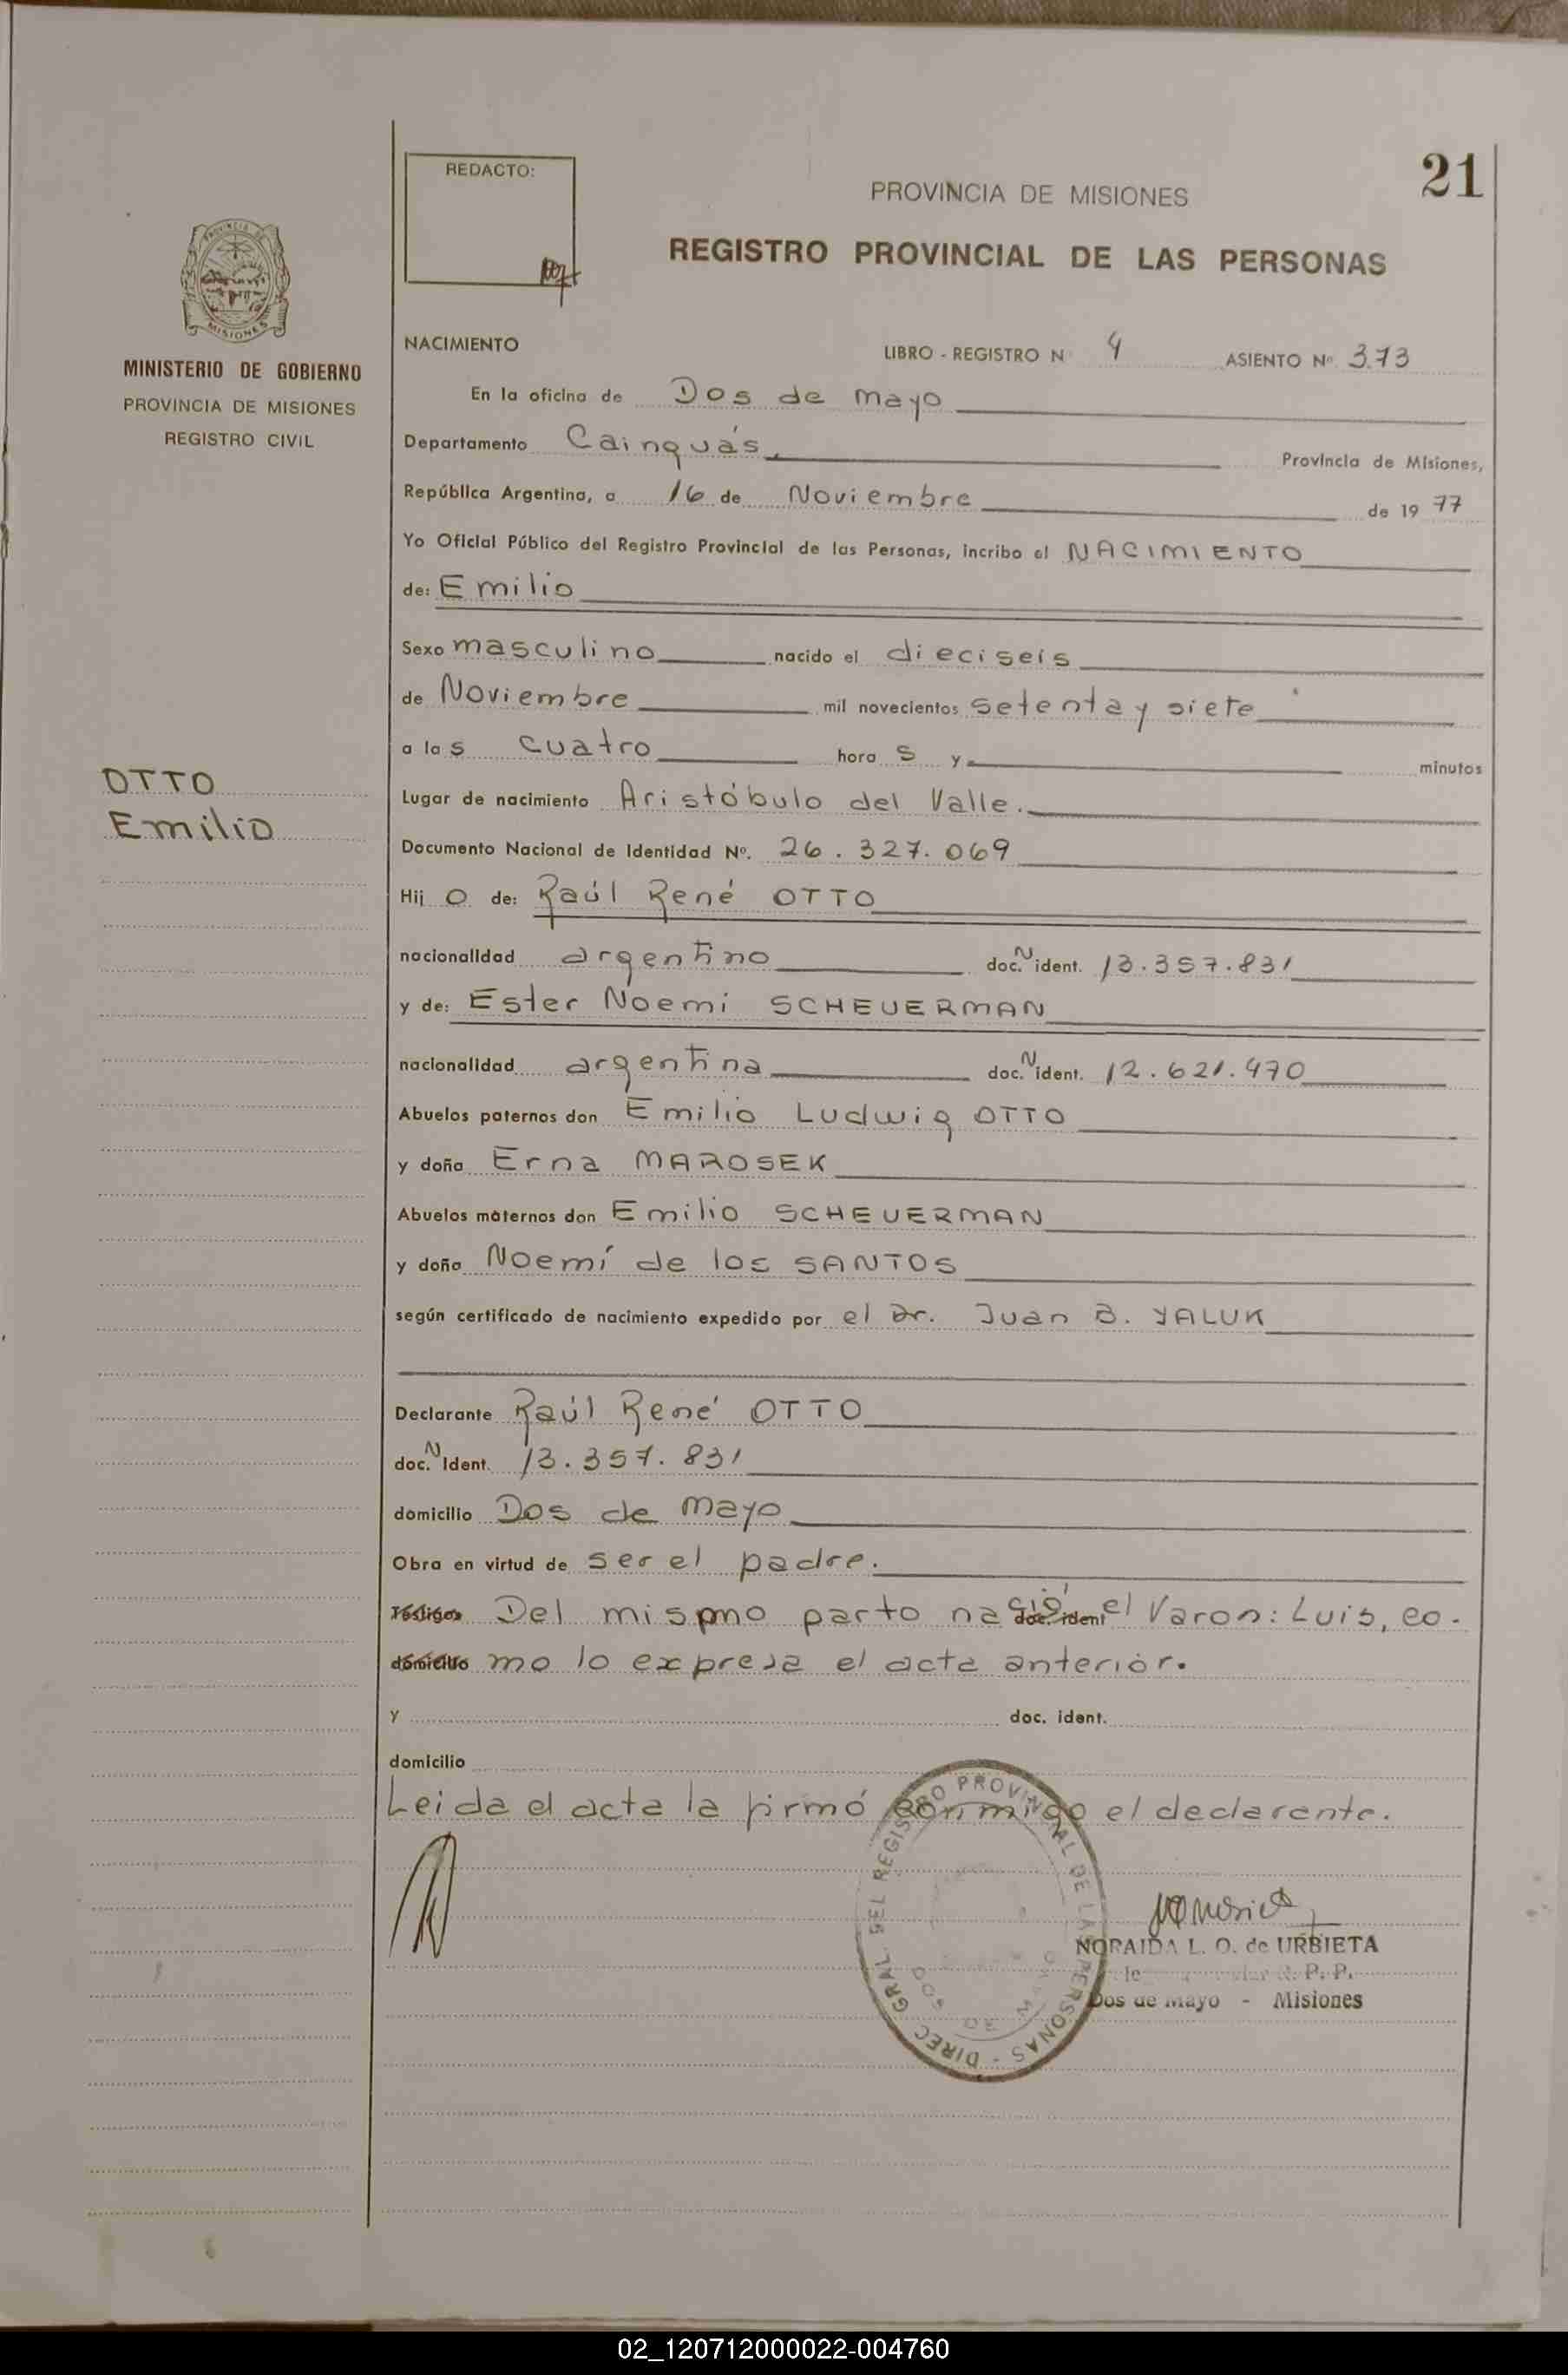 21
REDACTO:
PROVINCIA DE MISIONES
REGISTRO PROVINCIAL DE LAS PERSONAS
PROVINCIA DE
MISIONES
MINISTERIO DE GOBIERNO
PROVINCIA DE MISIONES
REGISTRO CIVIL
OTTO
Emilio
NACIMIENTO LIBRO - REGISTRO Nº 4 ASIENTO Nº 373
En la oficina de Dos de mayo
Departamento Cainguás, Provincia de Misiones,
República Argentina, a 16 de Noviembre de 1977
Yo Oficial Público del Registro Provincial de las Personas, incribo el NACIMIENTO
de: Emilio
Sexo masculino nacido el dieciseis
de Noviembre mil novecientos setenta y siete
a las cuatro horas y minutos
Lugar de nacimiento Aristóbulo del Valle.
Documento Nacional de Identidad Nº. 26.327.069
Hijo de: Raúl René OTTO
nacionalidad argentino doc. N ident. 13.357.831
y de: Ester Noemi SCHEUERMAN
nacionalidad argentina doc. N ident. 12.621.470
Abuelos paternos don Emilio Ludwig OTTO
y doña Erna MAROSEK
Abuelos maternos don Emilio SCHEUERMAN
y doña Noemí de los SANTOS
según certificado de nacimiento expedido por el Dr. Juan B. YALUK
Declarante Raúl René OTTO
doc. N Ident. 13.357.831
domicilio Dos de mayo
Obra en virtud de ser el padre.
Testigos Del mismo parto nació doc. ident el Varon: Luis, co-
domicilio mo lo expresa el acta anterior.
y doc. ident.
domicilio
Leida el acta la firmó conmigo el declarante.
DIREC. GRAL. DEL REGISTRO PROVINCIAL DE LAS PERSONAS
DOS DE MAYO
NORAIDA L. O. de URBIETA
R. P. P.
Dos de Mayo - Misiones
02_120712000022-004760